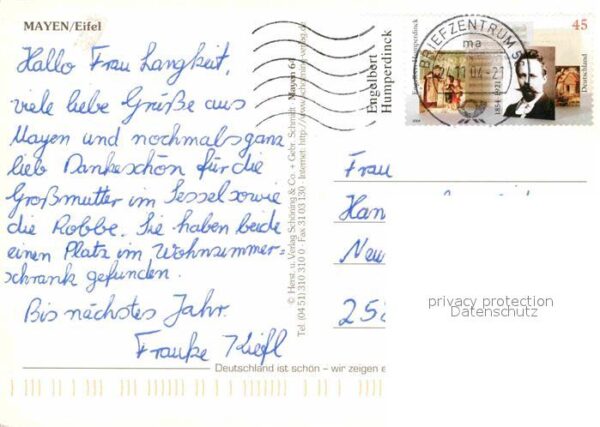 MAYEN/Eifel
Hallo Frau Langkeit,
viele liebe Grüße aus
Mayen und nochmals ganz
lieb Dankeschön für die
Großmutter im Sessel sowie
die Robbe. Sie haben beide
einen Platz im Wohnzimmer-
schrank gefunden.
Bis nächstes Jahr.
Frauke Kiefl
Deutschland ist schön – wir zeigen e
© Herst. u. Verlag Schöning & Co. + Gebr. Schmidt, Mayen 6
Tel. (04 51) 310 310 0 · Fax 31 03 130 · Internet: http://www.schoening-verlag.de
Engelbert
Humperdinck
45
Deutschland
1854-1921
BRIEFZENTRUM
ma
Frau
Han
Neu
25
privacy protection
Datenschutz